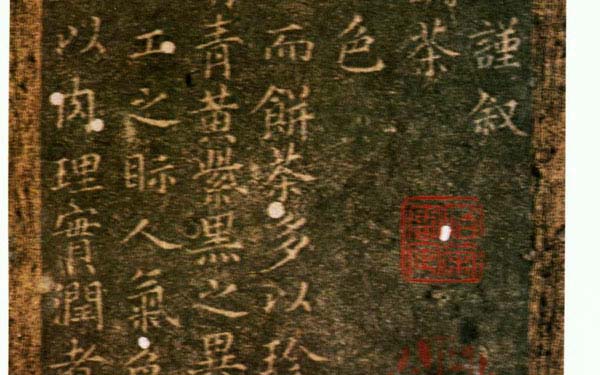 謹叙
茶
色
而餅茶多以珍
青黃紫黑之異
工之眎人氣色
以肉理實潤者